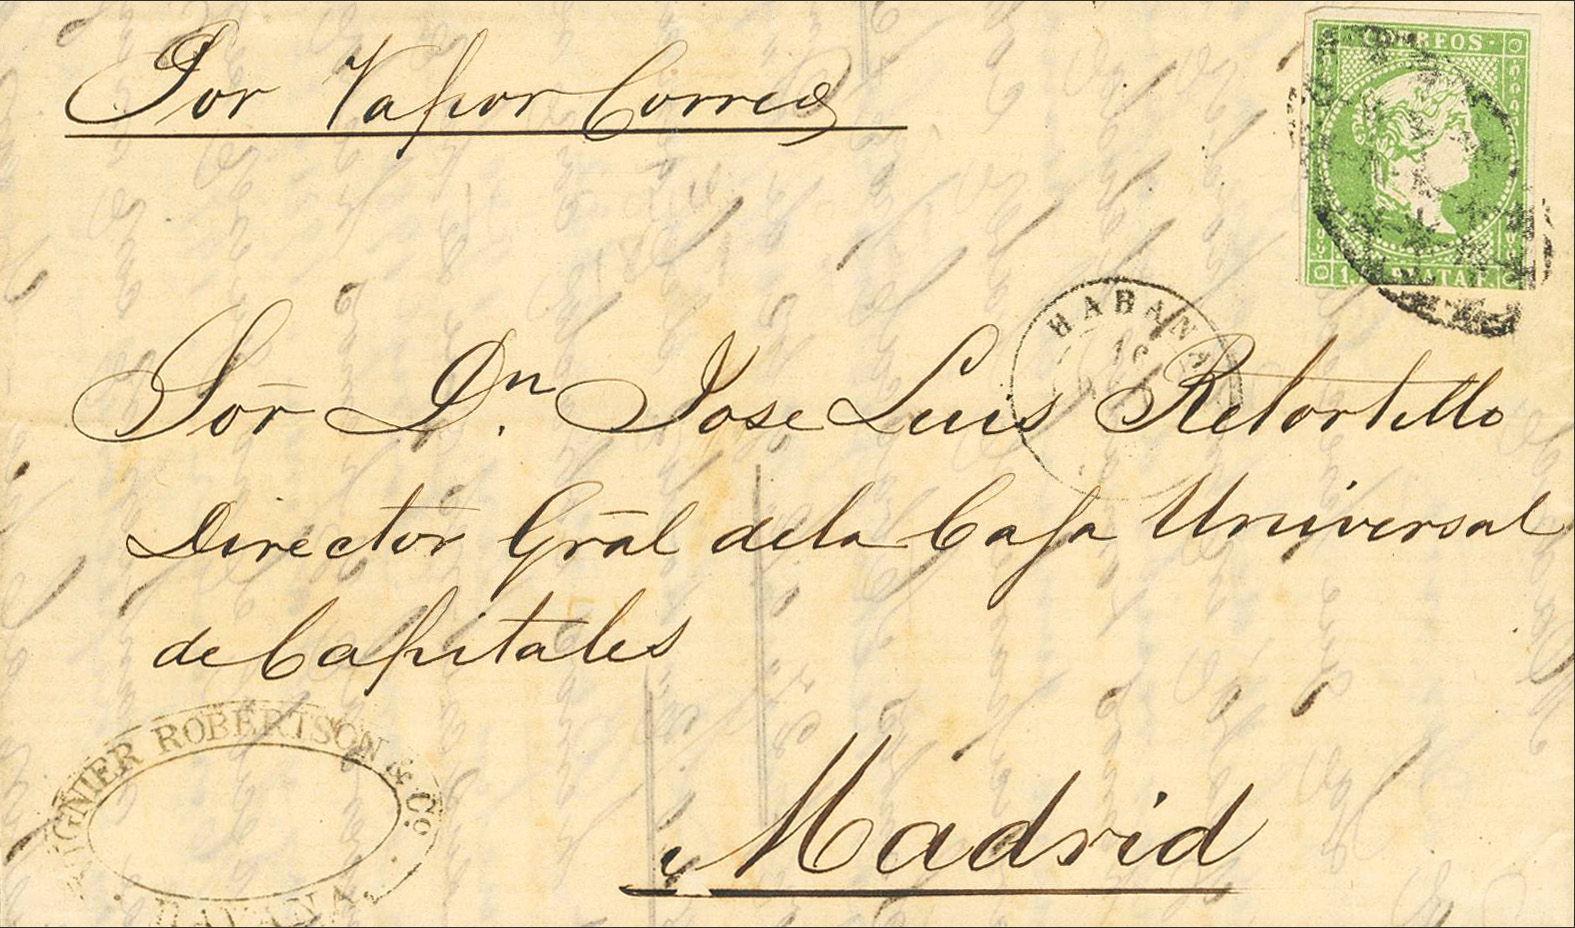 Por Vapor Correo
CORREOS
PLATA F.
HABANA
Sōr Dn. Jose Luis Retortillo
Director Grāl dela Caja Universal
de Capitales
ROBERTSON & Co.
HAVANA.
Madrid